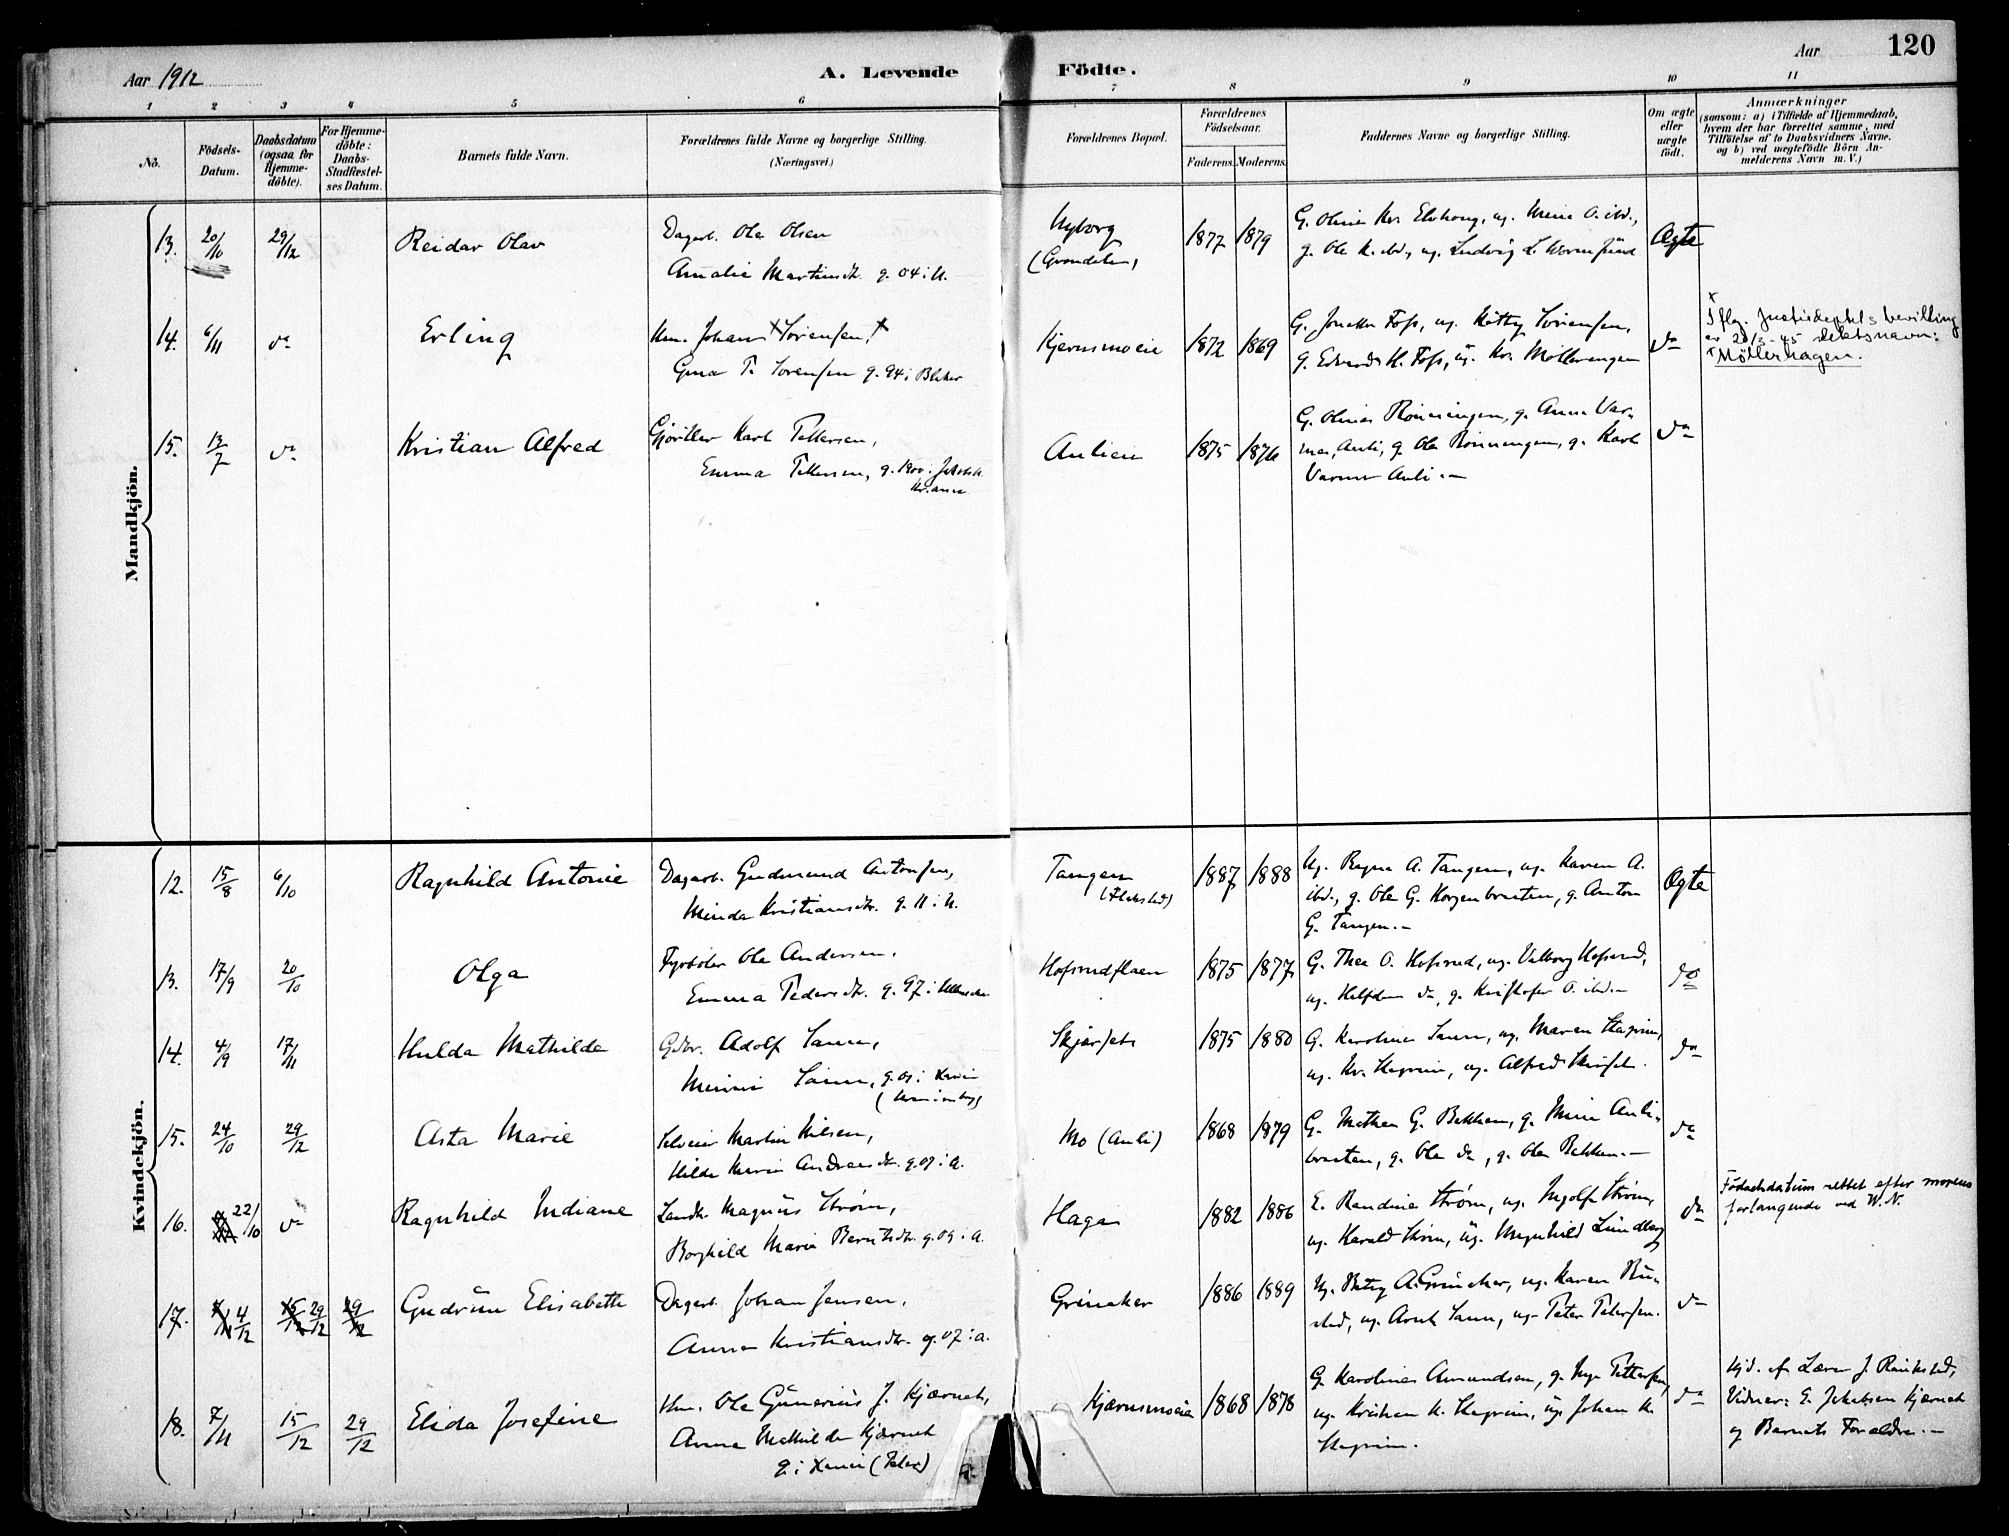 Aar 1912
A. Levende
Födte.
Aar
120
1 2 3 4 5 6 7 8 9 10 11
No.
Födsels-Datum.
Daabsdatum (ogsaa for Hjemme-döbte).
For Hjemme-döbte: Daabs-Stadfæstel-ses Datum.
Barnets fulde Navn.
Forældrenes fulde Navne og borgerlige Stilling. (Næringsvei.)
Forældrenes Bopæl.
Forældrenes Födselsaar.
Faderens. Moderens.
Faddernes Navne og borgerlige Stilling.
Om ægte eller uægte födt.
Anmærkninger
(saasom: a) i Tilfælde af Hjemmedaab, hvem der har forrettet samme, med Tilföielse af to Daabsvidners Navne, og b) ved uægtefödte Börn An-melderens Navn m. V.)
Mandkjön.
13. 20/10 29/12 Reidar Olav
Dagarb. Ole Olsen
Amalie Martinsdtr. g. 04 i U.
Nyborg
1877 1879
g. Ole K. ibd., ug. Ludvig L.
Ægte
14. 6/11 do Erling
Hm. Johan + Sörensen +
Gina T. Sörensen g. 94 i Bleker
Kjernsmoeie
1872 1869
G. Jonette Foss, ug. Kitty Sörensen,
g. Edvard H. Foss, ug. Kr. Möllerengen
do
x Iflg. Justisdeptets bevilling
av 20/3-45 slektsnavn:
x Möllerhagen.
15. 13/7 do Kristian Alfred
Gjörtler Karl Pettersen,
Emma Pettersen, g. 1900 i Jakobsk.
Kr.ania
Aulieie
1875 1876
G. Olina Rönningen, g. Anna Var-
mer, Auli, g. Ole Rönningen, g. Karl
Varmer Auli.—
do
Kvindekjön.
12. 15/8 6/10 Ragnhild Antonie
Dagarb. Gudmund Antonsen,
Minda Kristiansdtr. g. 11 i U.
Tangen
1887 1888
Ug. Ragna A. Tangen, ug. Karen A.
ibd., g. Ole G. Korgenbraaten, g. Anton
G. Tangen.—
Ægte
13. 17/9 20/10 Olga
Fyrböter Ole Andersen,
Emma Pedersdtr. g. 97 i
Hofsrudflaen
1875 1877
G. Thea O. Hofsrud, ug. Valborg Hofsrud,
ug. Halfdan do, g. Kristofer O. ibd.—
do
14. 4/9 17/11 Hulda Mathilde
Gdbr. Adolf Saun,
Minni Saun, g. 09 i
1875 1880
G. Karoline Saun, ug. Maren Hagrim,
ug. Kr. Hagrim, ug. Alfred
do
15. 24/10 29/12 Asta Marie
Selveier Martin Nilsen,
Hilda Marie Andreasdtr. g. 07 i A.
Mo (Auli)
1868 1879
G. Mathea G. Bekken, g. Mina Auli-
braaten, g. Ole do, g. Ole Bekken.—
do
16. 22/10 do Ragnhild Indiane
Landh. Magnus Ström,
Borghild Marie Berntsdtr. g. 09 i A.
Haga
1882 1886
E. Randine Ström, ug. Ingolf Ström,
ug. Harald Ström, ug. Magnhild Lundberg
do
Födselsdatum rettet efter morens
forlangende ved W.N.
17. 4/12 29/12 Gudrun Elisabeth
Dagarb. Johan Jensen,
Anna Kristiansdtr. g. 07 i A.
Grinaker
1886 1889
Ug. Betzy A. Grinaker, ug. Karen Ru-
stad, ug. Arnt Saun, ug. Peter Petersen.
do
18. 7/11 15/12 29/12 Elida Josefine
Hm. Ole Gunerius J. Kjærnet,
Anna Mathilde Kjærnet
Kjærnsmoeie
1868 1878
G. Karoline Amundsen, g. Inga Pettersen,
ug. Kristian K. Hagrim, ug. Johan K.
Hagrim.
do
Hjd. af Lærer J. Raukstad,
Vidner: E. Jakobsen Kjærnet
og Barnets Forældre.—